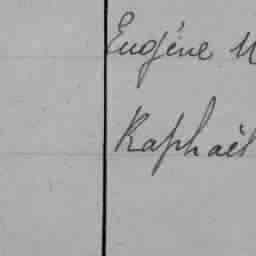 Eugène M
Raphaël